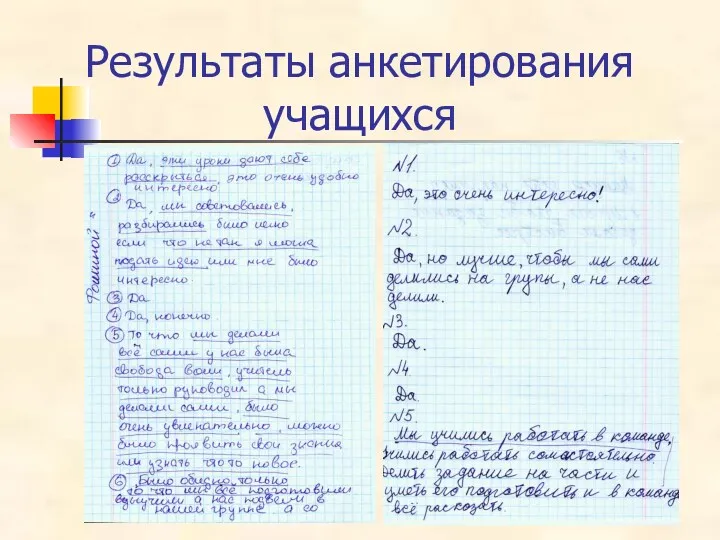 Результаты анкетирования
учащихся
① Да, эти уроки дают себе
расскриться, это очень удобно
интересно
② Да, мы советовались,
разбирались было ясно
если что не так я могла
подать идею или мне было
интересно.
③ Да
④ Да, конечно.
⑤ То что мы делали
всё сами у нас была
свобода воли, учитель
только руководил а мы
делали сами, было
очень увлекательно, можно
было проявить свои знания
или узнать что то новое.
⑥ Было обидно только
то что мы всё подготовили
выучили а нас подвели в
нашей группе а со
№1.
Да, это очень интересно!
№2.
Да, но лучше, чтобы мы сами
делились на групы, а не нас
делили.
№3.
Да.
№4
Да.
№5.
Мы учились работать в команде,
учились работать самостоятельно
делить задание на части и
уметь его подготовить и в команде
всё расказать.